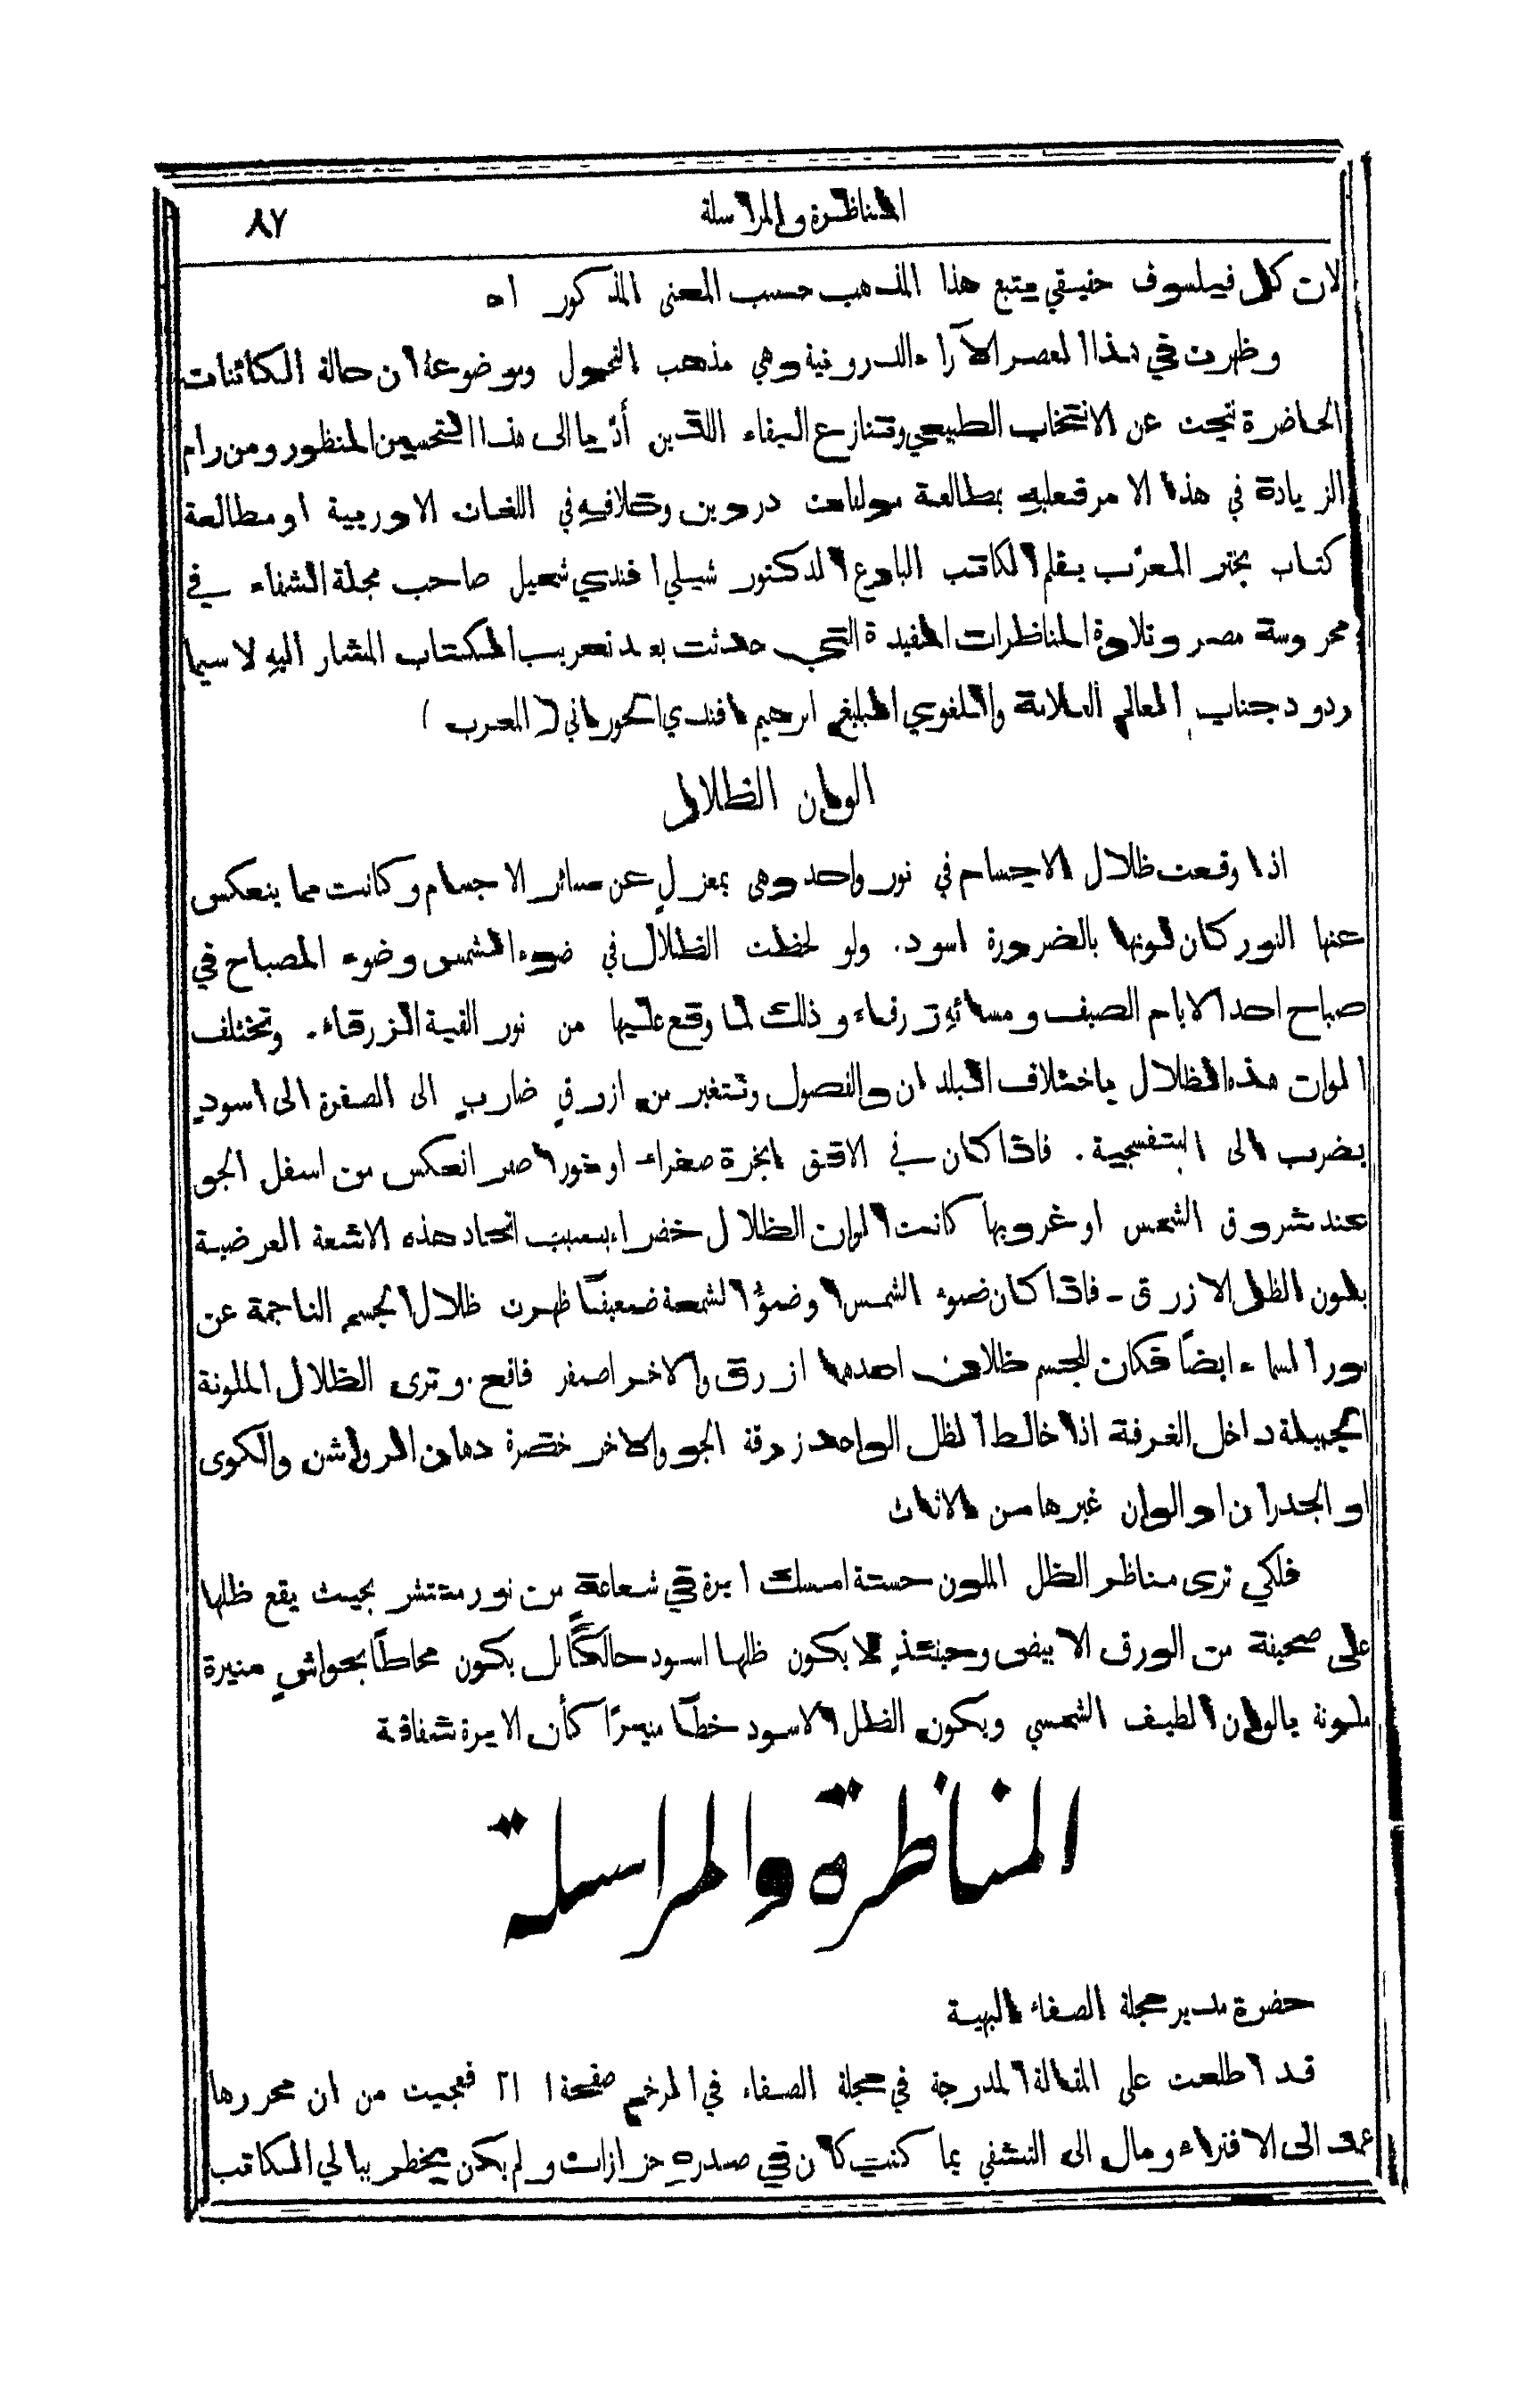 المناظرة والمراسلة ٨٧
لان كل فيلسوف حقيقي يتبع هذا المذهب حسب المعنى المذكور اه
وظهرت في هذا العصر الآراء الدروينية وهي مذهب التحول وموضوعهُ ان حالة الكائنات
الحاضرة نتجت عن الانتخاب الطبيعي وتنازع البقاء اللذين أدّيا الى هذا التحسين المنظور ومن رام
الزيادة في هذا الامر فعليهِ بمطالعة مولفات دروين وخلافهِ في اللغات الاوربية او مطالعة
كتاب بخنر المعرّب بقلم الكاتب البارع الدكتور شبلي افندي شميل صاحب مجلة الشفاء في
محروسة مصر وتلاوة المناظرات المفيدة التي حدثت بعد تعريب الكتاب المشار اليهِ لا سيما
ردود جناب العالم العلامة واللغوي البليغ ابرهيم افندي الحوراني ( المعرب )
الوان الظلال
اذا وقعت ظلال الاجسام في نور واحد وهي بمعزلٍ عن سائر الاجسام وكانت مما ينعكس
عنها النور كان لونها بالضرورة اسود. ولو لحظت الظلال في ضوء الشمس وضوء المصباح في
صباح احد الايام الصيف ومسائهِ زرقاء وذلك لما وقع عليها من نور القبة الزرقاء. وتختلف
الوان هذه الظلال باختلاف البلدان والفصول وتتغير من ازرقٍ ضاربٍ الى الصفرة الى اسودٍ
يضرب الى البنفسجية. فاذا كان في الافق ابخرة صفراء او نورا صفر انعكس من اسفل الجو
عند شروق الشمس او غروبها كانت الوان الظلال خضراء بسبب اتحاد هذه الاشعة العرضية
بلون الظل الازرق - فاذا كان ضوء الشمس او ضوءُ الشمعة ضعيفًا ظهرت ظلال الجسم الناجمة عن
نور السماء ايضًا فكان للجسم ظلان احدهما ازرق والاخر اصفر فاقع. وترى الظلال الملونة
الجميلة داخل الغرفة اذا خالط الظل الواحد زرقة الجو والاخر خضرة دهان الرواشن والكوى
او الجدران او الوان غيرها من الاثاث
فلكي ترى مناظر الظل الملون حسنة امسك ابرة في شعاعة من نور منتشر بحيث يقع ظلها
على صحيفة من الورق الابيض وحينئذٍ لا يكون ظلها اسود حالكًا بل يكون محاطًا بحواشٍ منيرة
ملونة بالوان الطيف الشمسي ويكون الظل الاسود خطًا منيرًا كأن الابرة شفافة
المناظرة والمراسلة
حضرة مدير مجلة الصفاء البهية
قد اطلعت على المقالة المدرجة في مجلة الصفاء في صفحة فعجبت من ان محررها
عمد الى الافتراء ومال الى التشفي بما كنت كان في صدرهِ حزازات ولم يكن يخطر ببالي المكاتب